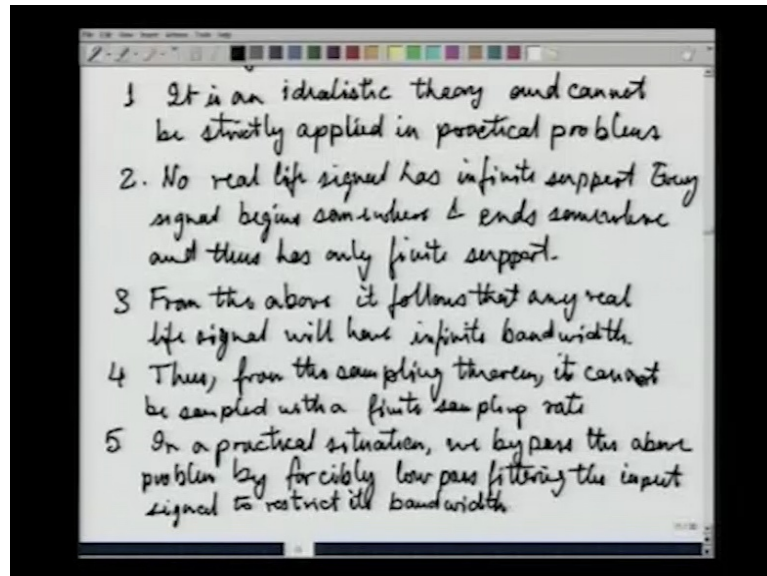 1 It is an idealistic theory and cannot
be strictly applied in practical problems
2. No real life signal has infinite support Every
signal begins somewhere & ends somewhere
and thus has only finite support.
3 From the above it follows that any real
life signal will have infinite bandwidth.
4 Thus, from the sampling theorem, it cannot
be sampled with a finite sampling rate
5 In a practical situation, we bypass the above
problem by forcibly low pass filtering the input
signal to restrict its bandwidth